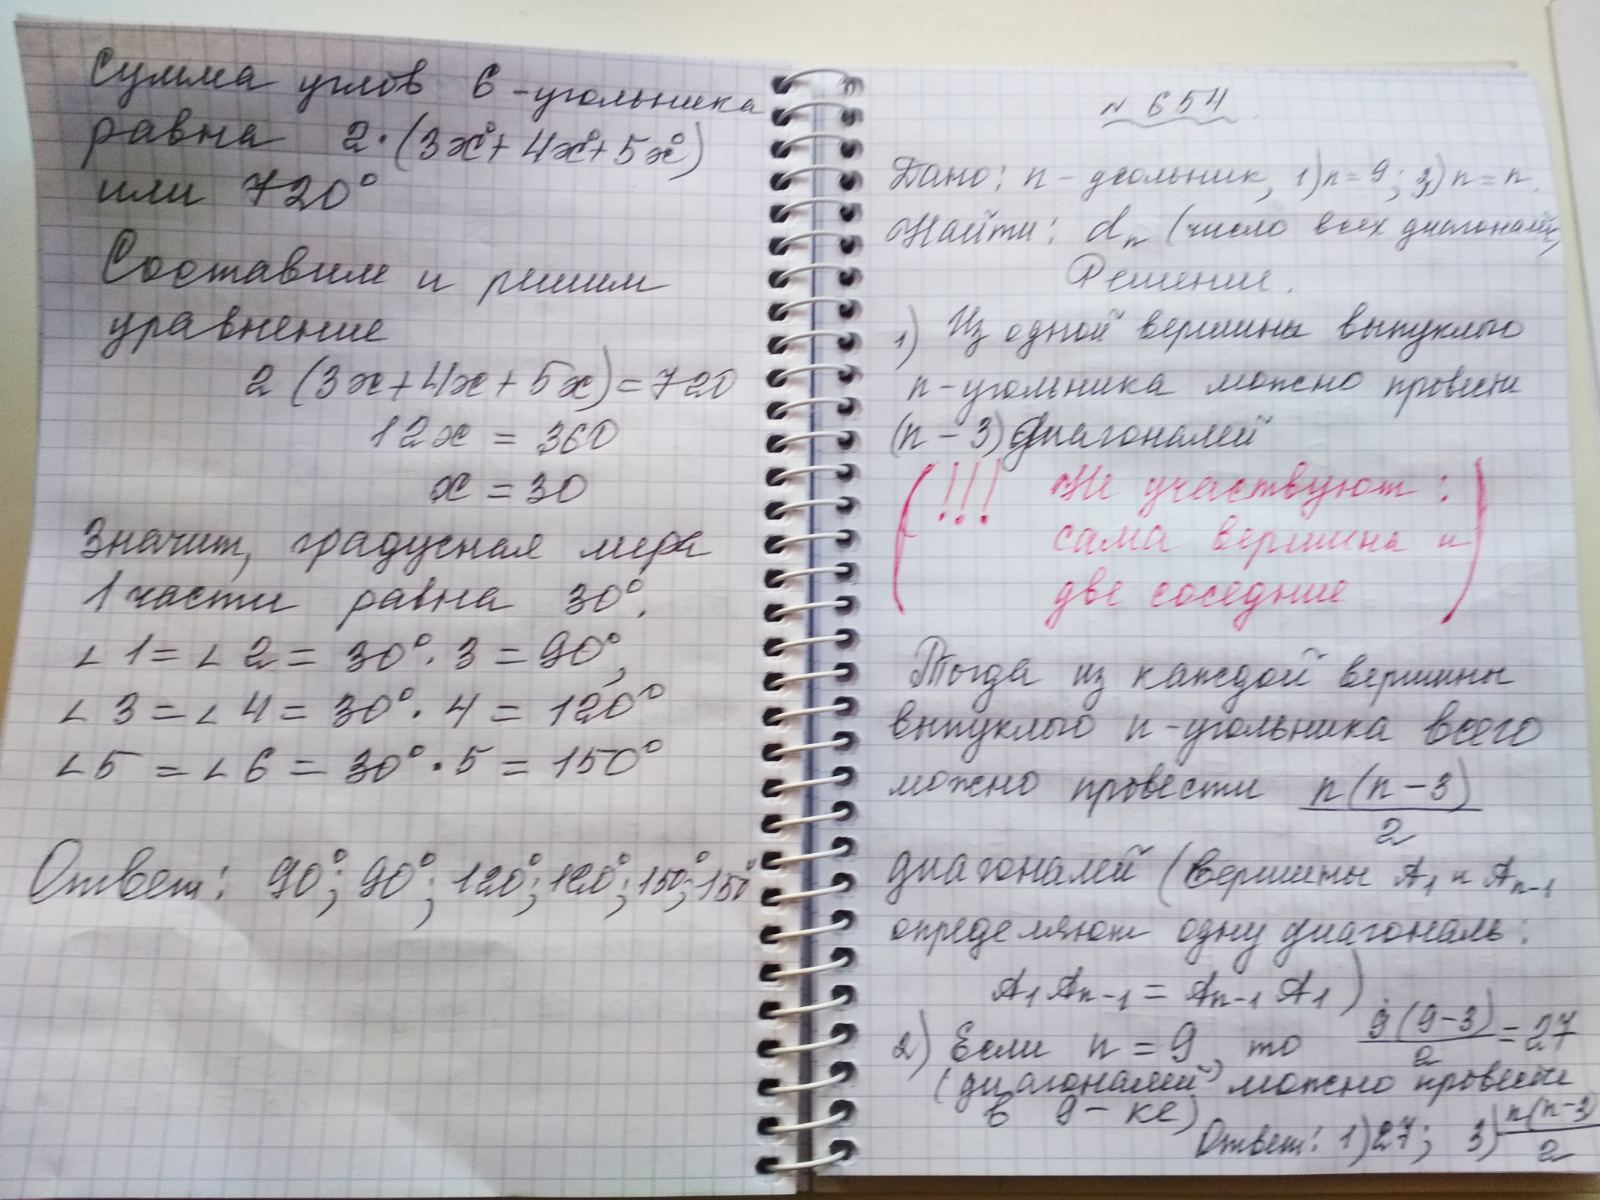 Сумма углов 6-угольника
равна 2·(3x°+4x°+5x°)
или 720°
Составим и решим
уравнение
2(3x+4x+5x)=720
12x = 360
x = 30
Значит, градусная мера
1 части равна 30°.
∠1=∠2=30°·3=90°,
∠3=∠4=30°·4=120°
∠5=∠6=30°·5=150°
Ответ: 90°; 90°; 120°; 120°; 150°; 150°
№ 654.
Дано: n-угольник, 1) n=9; 3) n=n.
Найти: dₙ (число всех диагоналей)
Решение.
1) Из одной вершины выпуклого
n-угольника можно провести
(n-3) диагоналей
(!!! Не участвуют:
сама вершина и
две соседние)
Тогда из каждой вершины
выпуклого n-угольника всего
можно провести n(n-3)/2
диагоналей (вершины A₁ и Aₙ₋₁
определяют одну диагональ:
A₁Aₙ₋₁ = Aₙ₋₁A₁)
2) Если n=9, то 9(9-3)/2=27
(диагоналей можно провести
в 9-ке)
Ответ: 1) 27; 3) n(n-3)/2